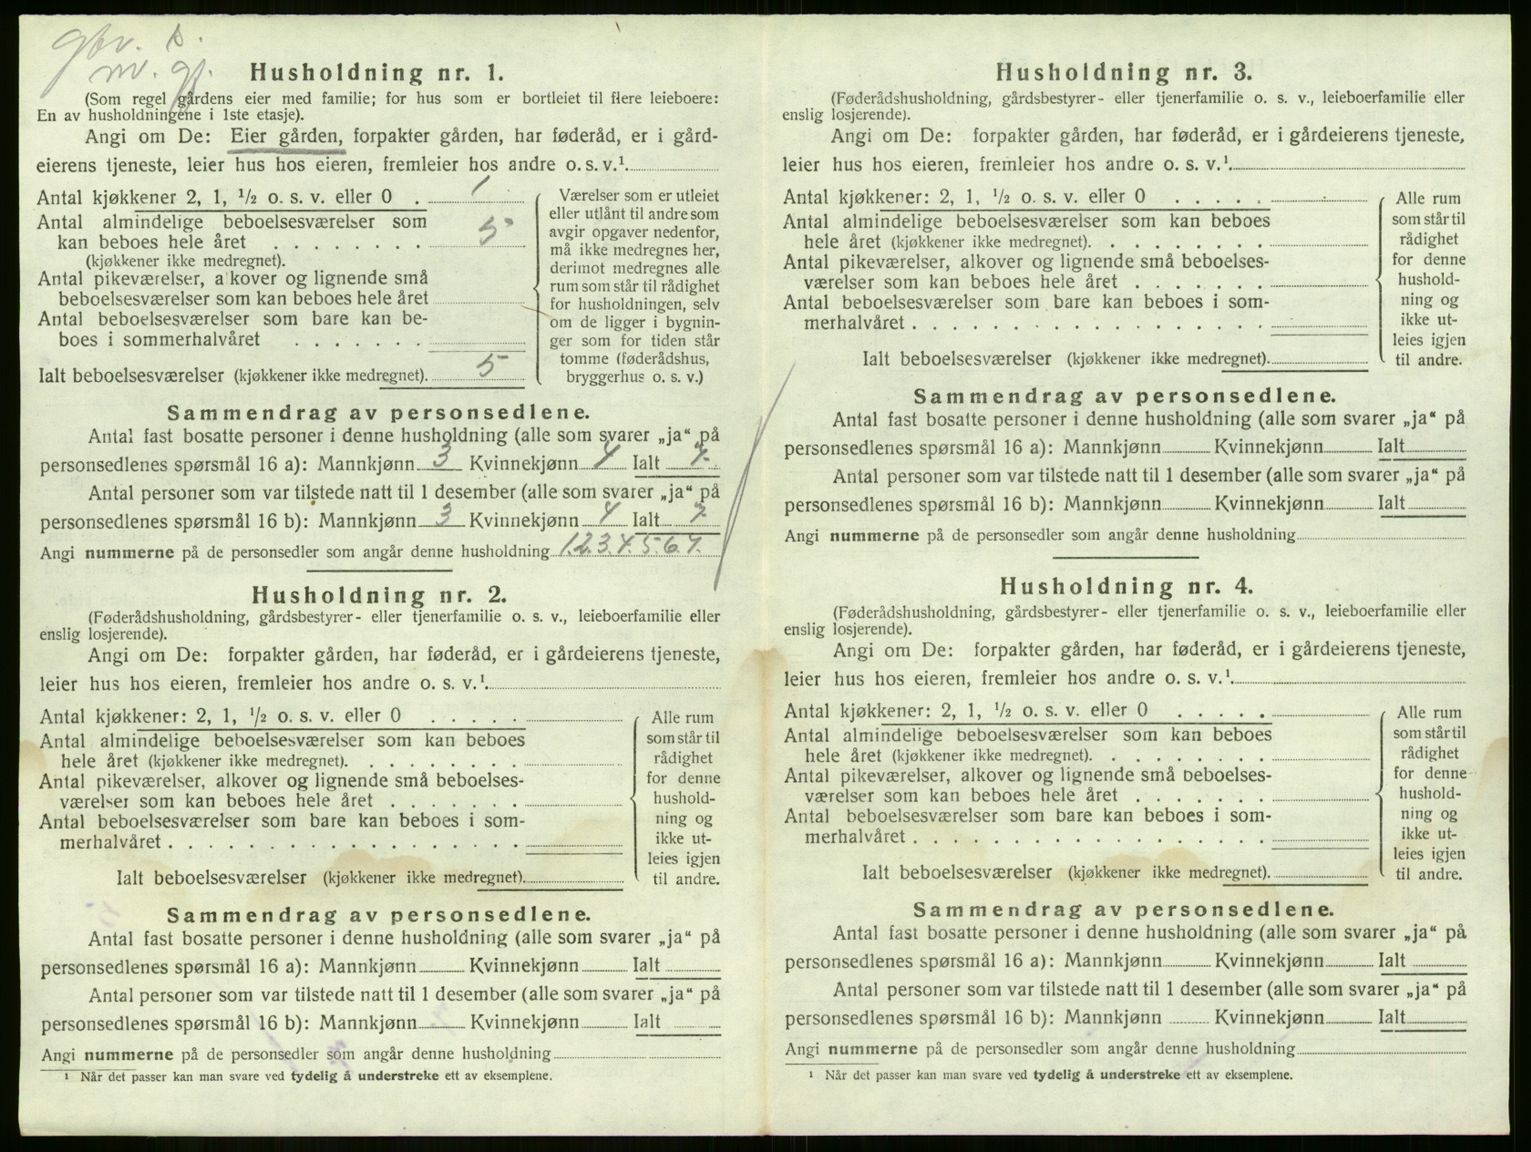 gbr. b.
m. gj.
Husholdning nr. 1.
(Som regel gårdens eier med familie; for hus som er bortleiet til flere leieboere:
En av husholdningene i 1ste etasje).
Angi om De: Eier gården, forpakter gården, har føderåd, er i gård-
eierens tjeneste, leier hus hos eieren, fremleier hos andre o. s. v.¹
Antal kjøkkener 2, 1, ½ o. s. v. eller 0 . 1
Antal almindelige beboelsesværelser som
kan beboes hele året . . . . . . . . 5
(kjøkkener ikke medregnet).
Antal pikeværelser, alkover og lignende små
beboelsesværelser som kan beboes hele året
Antal beboelsesværelser som bare kan be-
boes i sommerhalvåret . . . . . . .
Ialt beboelsesværelser (kjøkkener ikke medregnet). 5
Værelser som er utleiet
eller utlånt til andre som
avgir opgaver nedenfor,
må ikke medregnes her,
derimot medregnes alle
rum som står til rådighet
for husholdningen, selv
om de ligger i bygnin-
ger som for tiden står
tomme (føderådshus,
bryggerhus o. s. v.)
Sammendrag av personsedlene.
Antal fast bosatte personer i denne husholdning (alle som svarer „ja“ på
personsedlenes spørsmål 16 a): Mannkjønn 3 Kvinnekjønn 4 Ialt 7.
Antal personer som var tilstede natt til 1 desember (alle som svarer „ja“ på
personsedlenes spørsmål 16 b): Mannkjønn 3 Kvinnekjønn 4 Ialt 7
Angi nummerne på de personsedler som angår denne husholdning 1.2.3.4.5.6.7.
Husholdning nr. 2.
(Føderådshusholdning, gårdsbestyrer- eller tjenerfamilie o. s. v., leieboerfamilie eller
enslig losjerende).
Angi om De: forpakter gården, har føderåd, er i gårdeierens tjeneste,
leier hus hos eieren, fremleier hos andre o. s. v.¹
Antal kjøkkener: 2, 1, ½ o. s. v. eller 0 . . . . .
Antal almindelige beboelsesværelser som kan beboes
hele året (kjøkkener ikke medregnet). . . . . . . . .
Antal pikeværelser, alkover og lignende små beboelses-
værelser som kan beboes hele året . . . . . . .
Antal beboelsesværelser som bare kan beboes i som-
merhalvåret . . . . . . . . . . . . . . . . . .
Ialt beboelsesværelser (kjøkkener ikke medregnet).
Alle rum
som står til
rådighet
for denne
hushold-
ning og
ikke ut-
leies igjen
til andre.
Sammendrag av personsedlene.
Antal fast bosatte personer i denne husholdning (alle som svarer „ja“ på
personsedlenes spørsmål 16 a): Mannkjønn Kvinnekjønn Ialt
Antal personer som var tilstede natt til 1 desember (alle som svarer „ja“ på
personsedlenes spørsmål 16 b): Mannkjønn Kvinnekjønn Ialt
Angi nummerne på de personsedler som angår denne husholdning
¹ Når det passer kan man svare ved tydelig å understreke ett av eksemplene.
Husholdning nr. 3.
(Føderådshusholdning, gårdsbestyrer- eller tjenerfamilie o. s. v., leieboerfamilie eller
enslig losjerende).
Angi om De: forpakter gården, har føderåd, er i gårdeierens tjeneste,
leier hus hos eieren, fremleier hos andre o. s. v.¹
Antal kjøkkener: 2, 1, ½ o. s. v. eller 0 . . . . .
Antal almindelige beboelsesværelser som kan beboes
hele året (kjøkkener ikke medregnet). . . . . . . . .
Antal pikeværelser, alkover og lignende små beboelses-
værelser som kan beboes hele året . . . . . . .
Antal beboelsesværelser som bare kan beboes i som-
merhalvåret . . . . . . . . . . . . . . . . . .
Ialt beboelsesværelser (kjøkkener ikke medregnet).
Alle rum
som står til
rådighet
for denne
hushold-
ning og
ikke ut-
leies igjen
til andre.
Sammendrag av personsedlene.
Antal fast bosatte personer i denne husholdning (alle som svarer „ja“ på
personsedlenes spørsmål 16 a): Mannkjønn Kvinnekjønn Ialt
Antal personer som var tilstede natt til 1 desember (alle som svarer „ja“ på
personsedlenes spørsmål 16 b): Mannkjønn Kvinnekjønn Ialt
Angi nummerne på de personsedler som angår denne husholdning
Husholdning nr. 4.
(Føderådshusholdning, gårdsbestyrer- eller tjenerfamilie o. s. v., leieboerfamilie eller
enslig losjerende).
Angi om De: forpakter gården, har føderåd, er i gårdeierens tjeneste,
leier hus hos eieren, fremleier hos andre o. s. v.¹
Antal kjøkkener: 2, 1, ½ o. s. v. eller 0 . . . . .
Antal almindelige beboelsesværelser som kan beboes
hele året (kjøkkener ikke medregnet). . . . . . . . .
Antal pikeværelser, alkover og lignende små beboelses-
værelser som kan beboes hele året . . . . . . .
Antal beboelsesværelser som bare kan beboes i som-
merhalvåret . . . . . . . . . . . . . . . . . .
Ialt beboelsesværelser (kjøkkener ikke medregnet).
Alle rum
som står til
rådighet
for denne
hushold-
ning og
ikke ut-
leies igjen
til andre.
Sammendrag av personsedlene.
Antal fast bosatte personer i denne husholdning (alle som svarer „ja“ på
personsedlenes spørsmål 16 a): Mannkjønn Kvinnekjønn Ialt
Antal personer som var tilstede natt til 1 desember (alle som svarer „ja“ på
personsedlenes spørsmål 16 b): Mannkjønn Kvinnekjønn Ialt
Angi nummerne på de personsedler som angår denne husholdning
¹ Når det passer kan man svare ved tydelig å understreke ett av eksemplene.